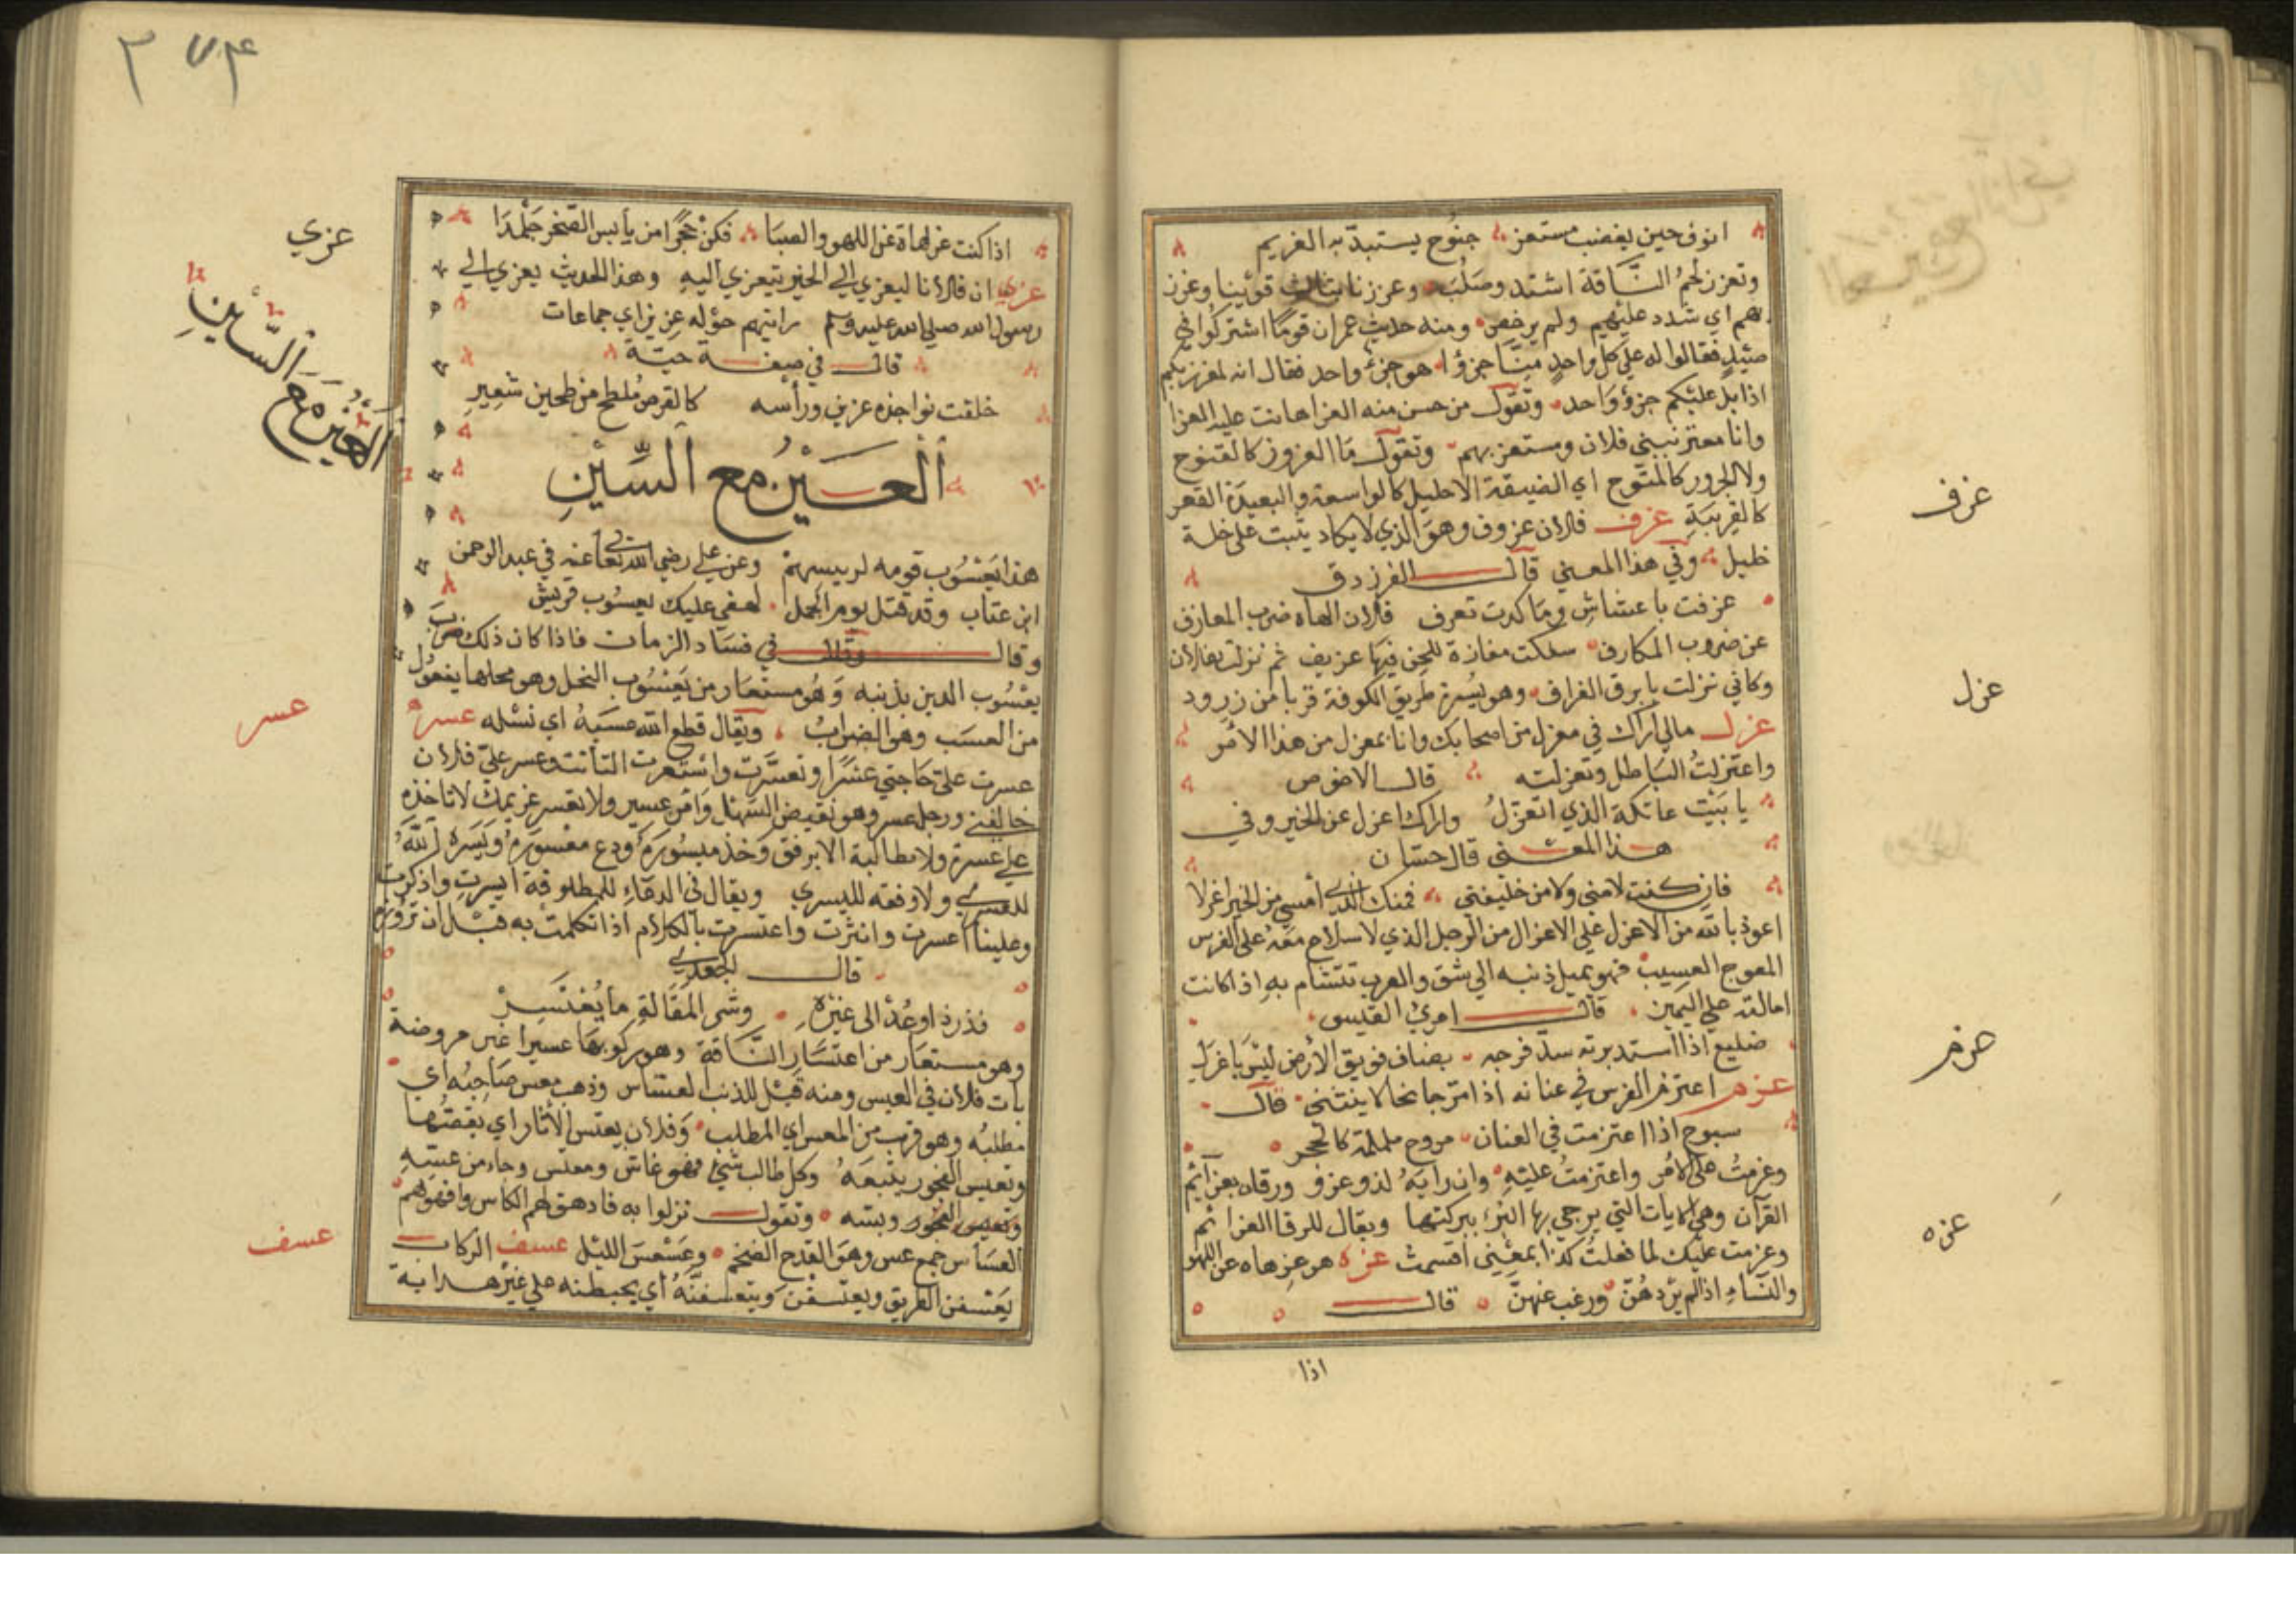 انوف حين يغضب مستعز جنوح يستبد به الغريم
وتعزز لحم الناقة اشتد وصلب وعززنا بثالث قوينا وعزز
بهم اي شدد عليهم ولم يرخص ومنه حديث عمران قوما اشتركوا في
صيد فقالوا له على كل واحد منا جزؤا هو جزء واحد فقال انه لمعزز بكم
اذا بل عليكم جزؤ واحد وتقول من حسن منه العزا هانت عليه العزا
وانا معتز ببني فلان ومستعز بهم وتقول ما العزوز كالفتوح
ولا الجرور كالمتوح اي الضيقة الاحليل كالواسعة والبعيدة القعر
كالقريبة عزف فلان عزوف وهو الذي لا يكاد يثبت على خلة
خليل وفي هذا المعنى قال الفرزدق
عزفت باعشاش وما كدت تعرف فلان الهاه ضرب المعازف
عن ضروب المكارف سلكت مفازة للجن فيها عزيف ثم نزلت بفلان
وكاني نزلت بابرق الغراف وهو يسرة طريق الكوفة قريا من زرود
عزل مالي اراك في معزل من اصحابك وانا بمعزل من هذا الامر
واعتزلت الباطل وتعزلته قال الاخوص
يا بيت عاتكة الذي اتعزل واراك اعزل عن الخير وفي
هذا المعنى قال حسان
فان كنت لا مني ولا من خليقتي فمنك الذي أمسى من الخير اعزلا
اعوذ بالله من الاعزل على الاعزال من الرجل الذي لا سلاح معه على الفرس
المعوج العسيب فهو يميل ذنبه الى شق والعرب تتشام به اذا كانت
امالته على اليمين قال امرئ القيس
ضليع اذا استدبرته سد فرجه بضاف فويق الأرض ليس باعزل
عزم اعتزم الفرس في عنانه اذا مر جامحا لا ينثني قال
سبوح اذا اعتزمت في العنان مروح ململمة كالحجر
وعزمت على الامر واعتزمت عليه وان رايه لذو عزم ورقاه بعزائم
القرآن وهي الايات التي يرجى بها البرء ببركتها ويقال للرقا العزائم
وعزمت عليك لما فعلت كذا بمعنى اقسمت عزه هو عزهاه عن اللهو
والنساء اذا لم يردهن ورغب عنهن قال
اذا
عزف
عزل
عزم
عزه
٢٧٤
اذا كنت عزهاة عن اللهو والصبا فكن حجرا من يابس الصخر جلمدا
عزي ان فلانا ليعزي الى الخير يتعزي اليه وهذا الحديث يعزي الى
رسول الله صلى الله عليه وسلم رايتهم حوله عزين اي جماعات
قال في صفة حية
خلقت نواجذه عزين ورأسه كالقرص فلطح من طحين شعير
ألعين مع السين
هذا يعسوب قومه لرييسهم وعن علي رضي الله تعا عنه في عبد الرحمن
ابن عتاب وقد قتل يوم الجمل لهفي عليك يعسوب قريش
وقال في فساد الزمان فاذا كان ذلك ضرب
يعسوب الدين بذنبه وهو مستعار من يعسوب النحل وهو فحلها يفعول
من العسب وهو الضراب ويقال قطع الله عسبه اي نسله عسر
عسرت على حاجتي عسرا وتعسرت واستعسرت التاتت وعسر على فلان
خالفني ورجل عسر وهو نقيض السهل وامر عسير ولا تعسر غريمك لا تاخذه
على عسرة ولا مطالبة الا برفق وخذ ميسوره ودع معسوره ويسره الله
للعسرى ولا وفقه لليسرى ويقال في الدعاء للمطلوقة ايسرت واذكرت
وعلينا أعسرت وانثرت واعتسرت بالكلام اذا تكلمت به قبل ان تزوره
قال الجعدي
فذرذا وعد الى غيره وشر المقالة ما يعتسر
وهو مستعار من اعتسار الناقة وهو ركوبها عسيرا غير مروضة
بات فلان في العس ومنه قيل للذنب العساس وذهب معس صاحبه اي
مطلبه وهو قرب من المعس اي المطلب وفلان يعتس الأثار اي يقصها
وتعيس الفجور يتبعه وكل طالب شيء فهو عاس ومعتس وجاء من عسه
وتعيس الفجور وبسه وتقول نزلوا به فادهق لهم الكاس وافهقهم
العساس جمع عس وهو القدح الضخم وعسعس الليل عسف الركاب
يعسفن الطريق ويعتسفن ويتعسفنه أي يخبطنه على غير هداية
عزي
العين مع السين
عسر
عسف